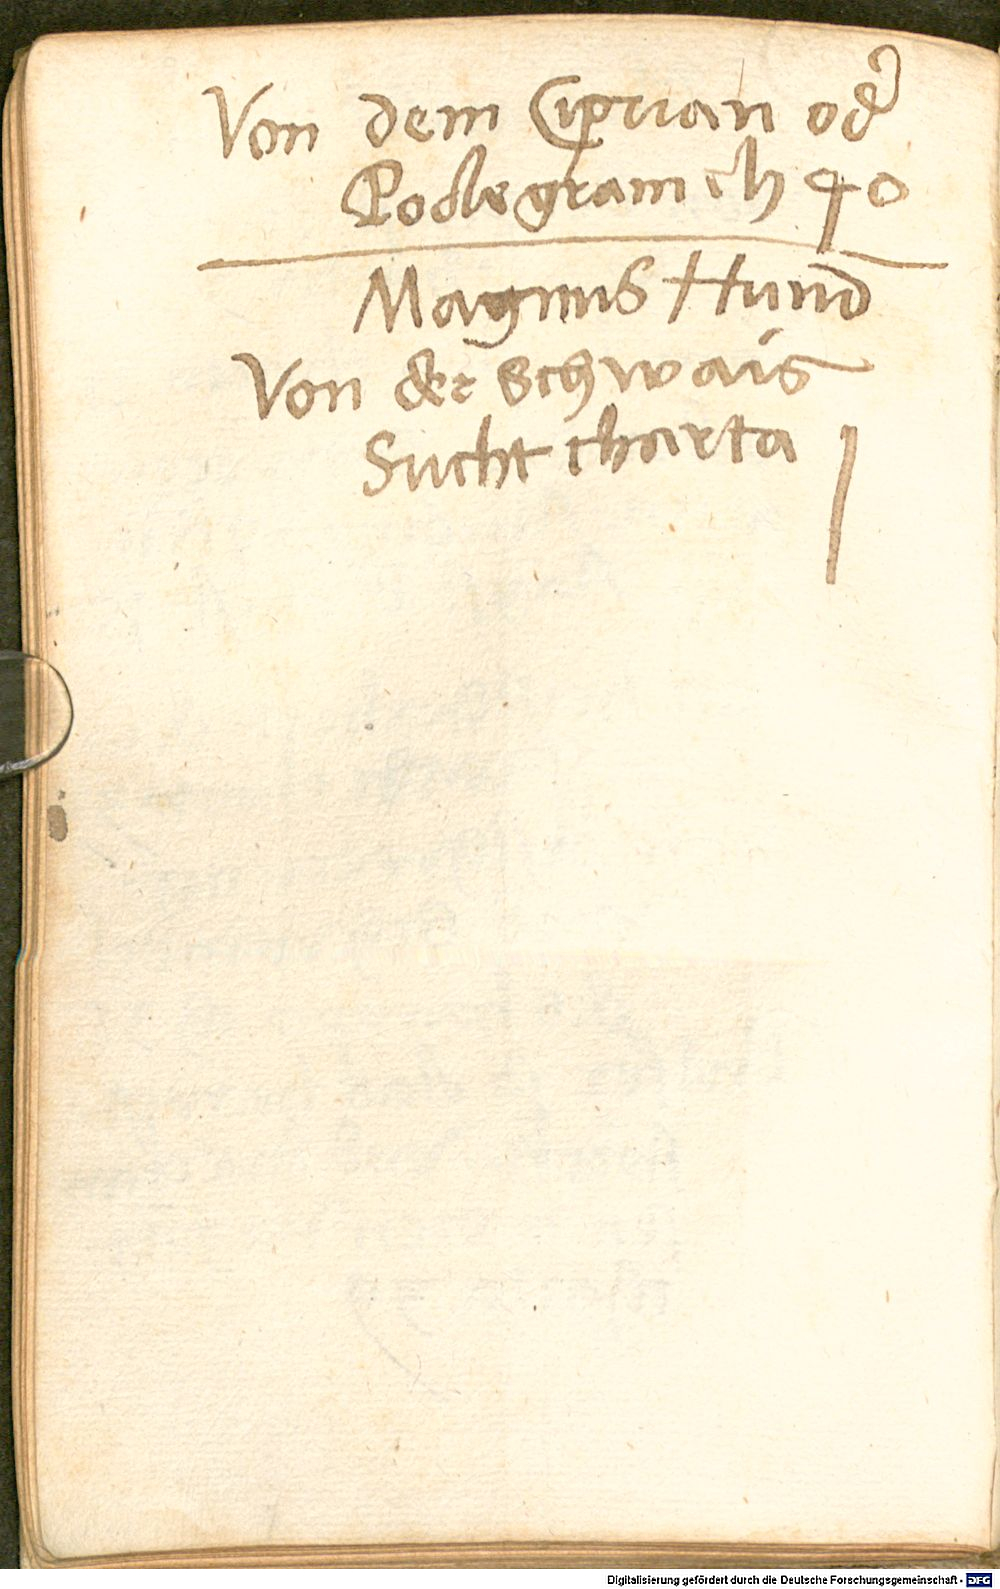 Von dem Ciprian od
Podlegram ch 40
Magnus Hund
Von der schwais
Sucht charta 1
Digitalisierung gefördert durch die Deutsche Forschungsgemeinschaft - DFG